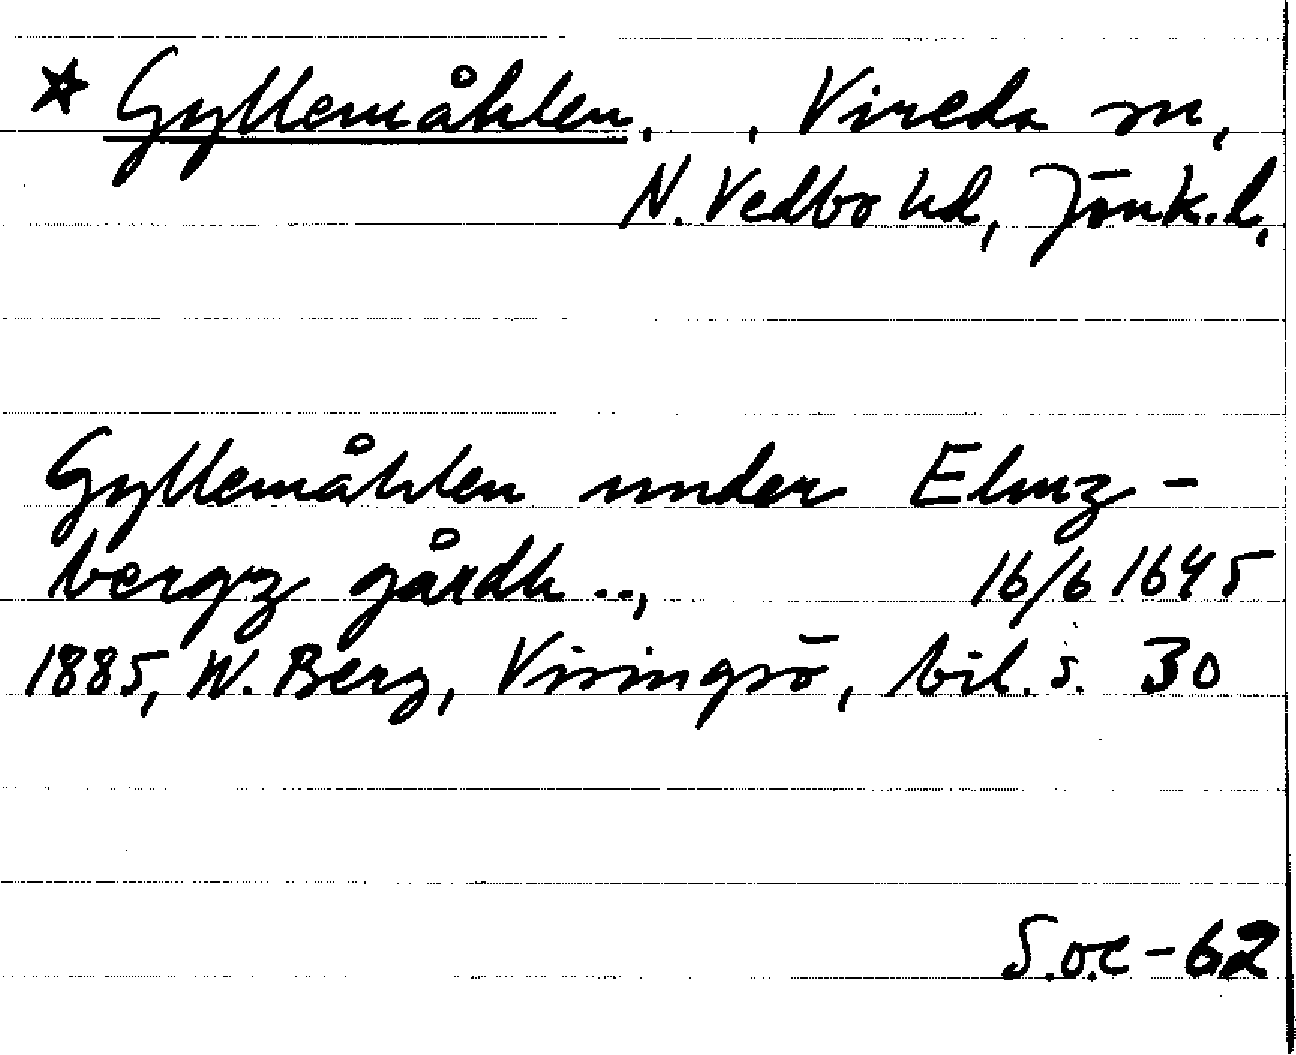 * Gyllemåhlen, , Vireda sn,
N. Vedbo hd, Jönk.l.
Gyllemåhlen under Elmz-
bergz gårdh..,   16/6 1645
1885, W. Berg, Visingsö, bil. s. 30
S.o.c-62